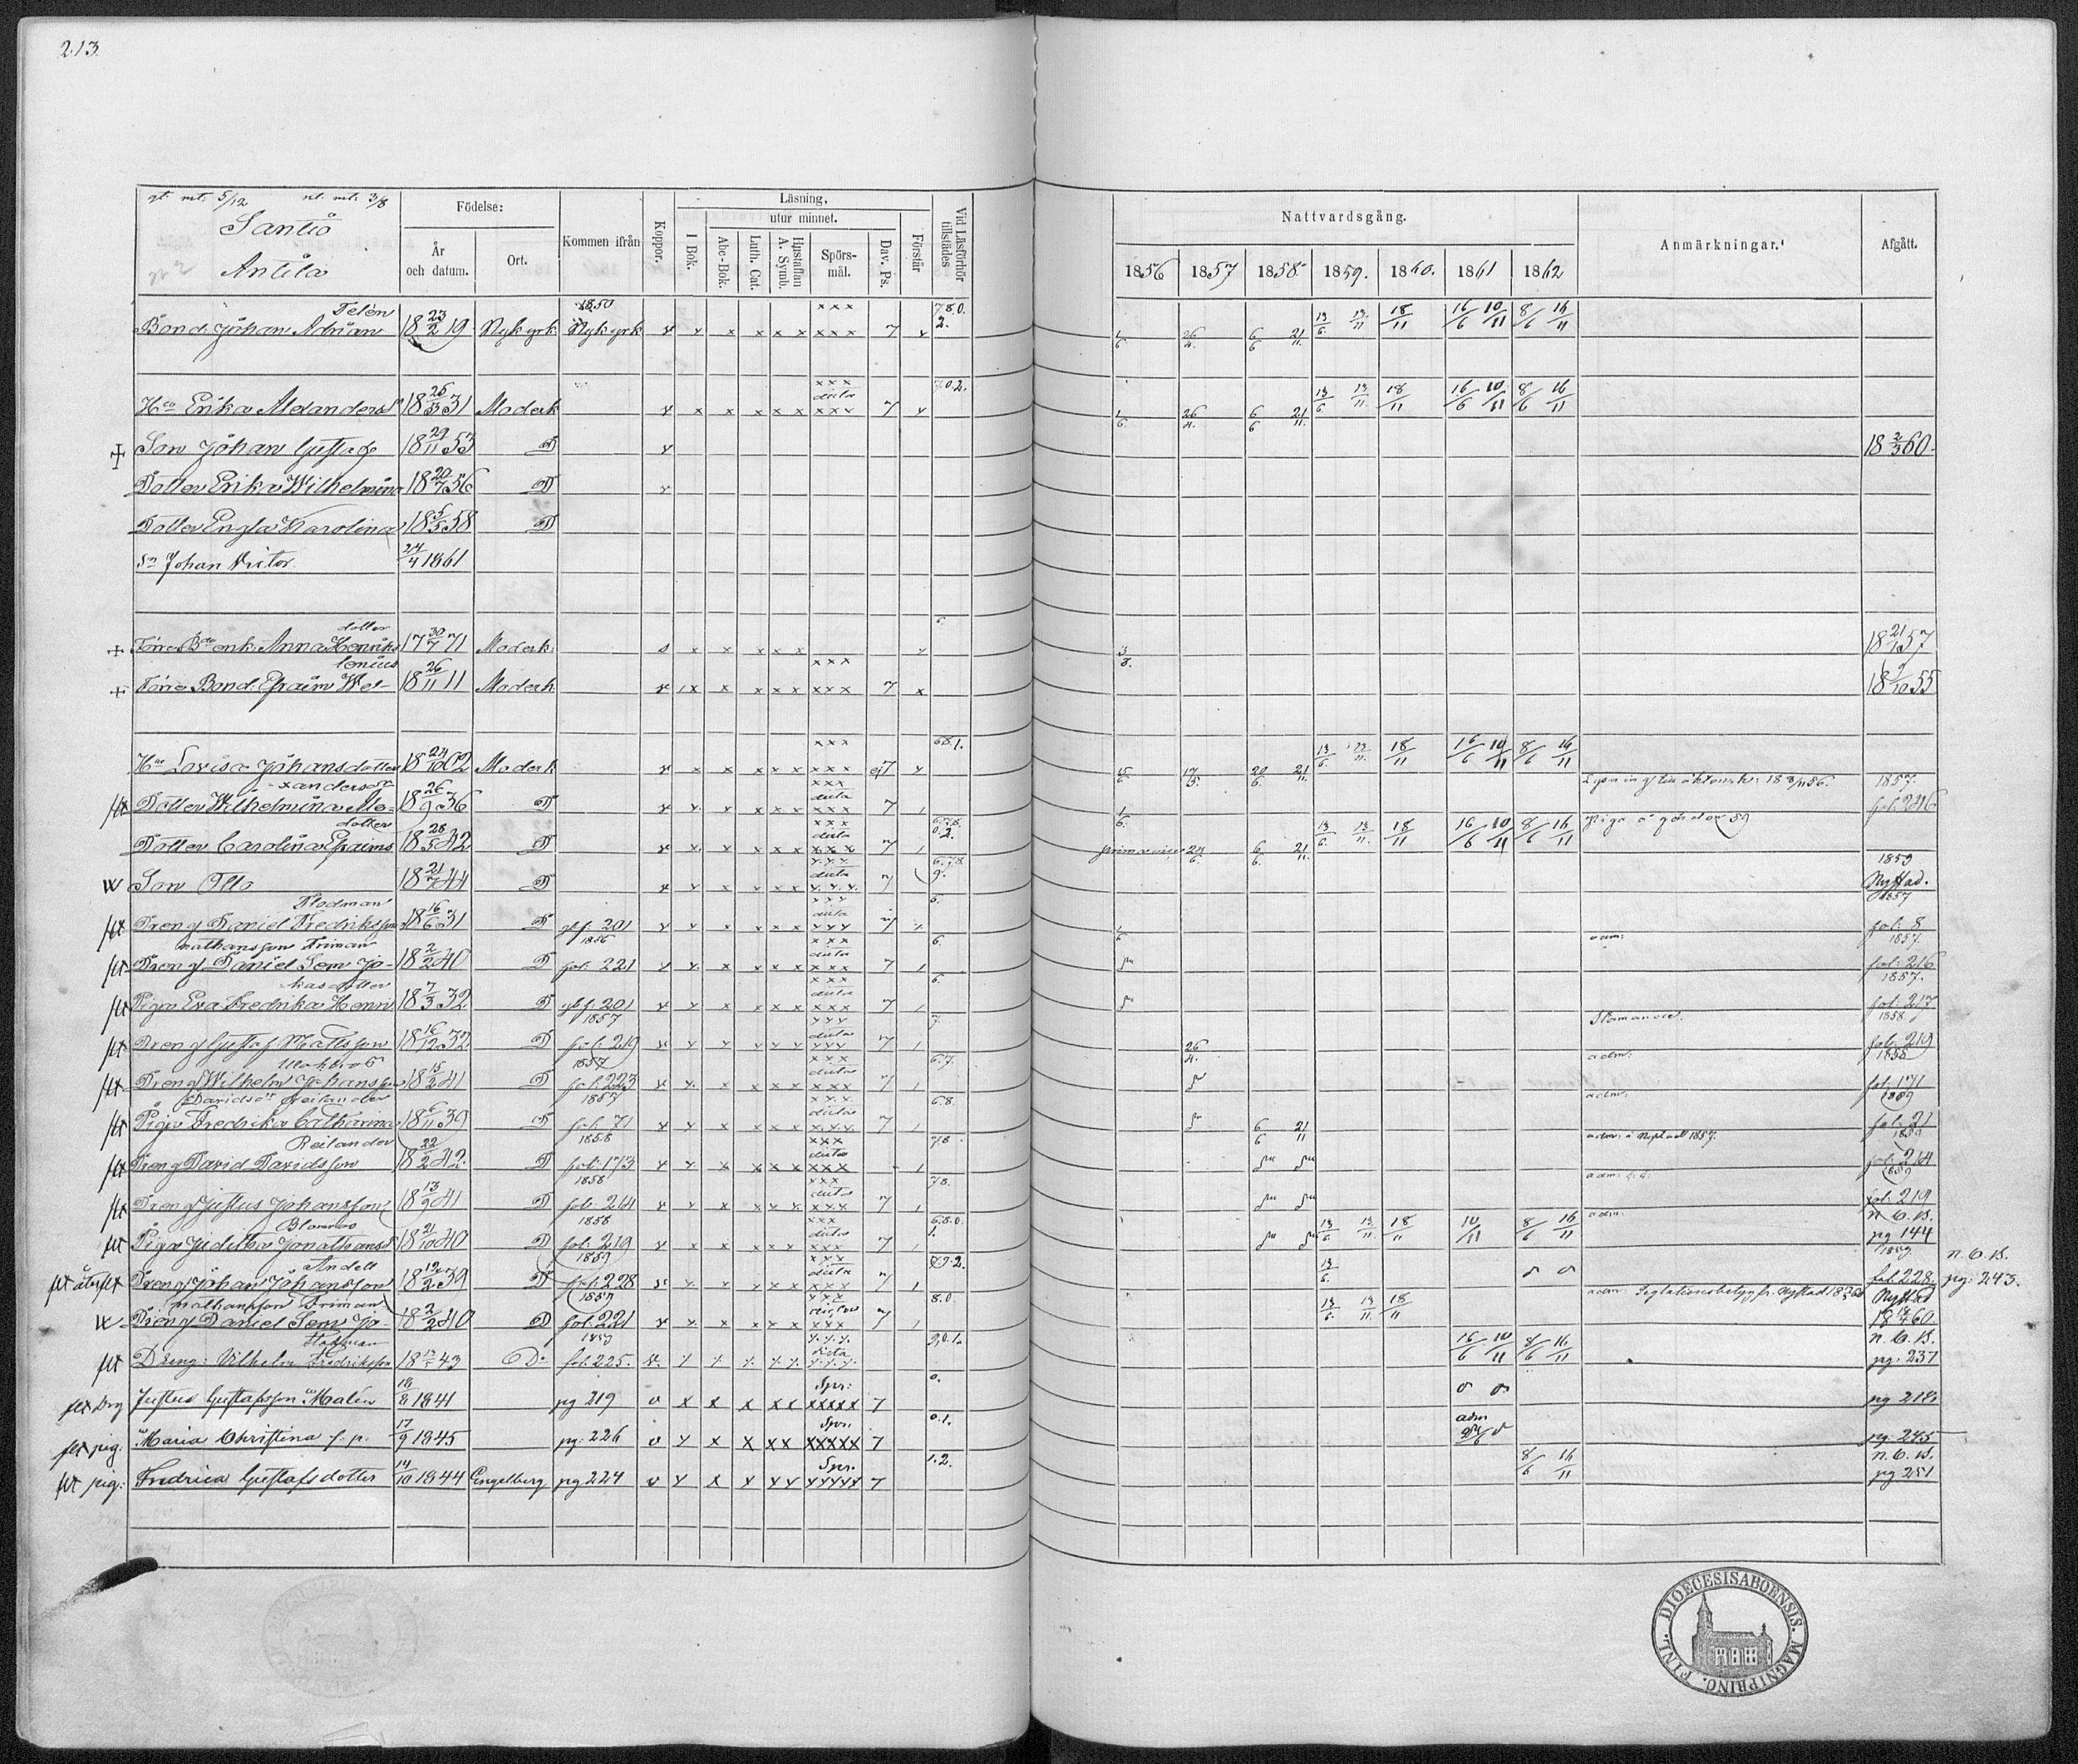 213.
gt. mt. 5/12 nt. mt. 3/8
Santio
Antila
Födelse:
År och datum.
Ort.
Kommen ifrån
Koppor.
Läsning,
I Bok.
utur minnet.
Abc-Bok.
Luth. Cat.
Hustaflan A. Symb.
Spörsmål.
Dav. Ps.
Förstår
Vid Läsförhör tillstädes
Nattvardsgång.
1856 1857 1858. 1859. 1860. 1861 1862
Anmärkningar.
Afgått.
Telén 1850 x x x 7 8. 0.
Bond. Johan Adrian 18 23/2 19 Nykyrk Nykyrk x x x x x x x x x 7 x 2. 1/6 26/4. 6/6 21/11. 13/6. 13/11 18/11 16/6 10/11 8/6 16/11
x x x dicta 7.0.2.
Hu Erika Alexandersdr 18 25/3 31 Moderk x x x x x x x x x 7 x 1/6. 26/4. 6/6 21/11. 13/6 13/11. 18/11 16/6 10/11 8/6 16/11
+ Son Johan Gustaf 18 29/11 53 D x 18 2/3 60.
Dotter Erika Wilhelmina 18 20/7 56 D x
Dotter Engla Karolina 18 5/5 58 D
Sn Johan Victor 24/4 1861
dotter 6.
+ Förre Bde enk. Anna Henriks 17 30/7 71 Moderk. s x x x x x x 3/8. 18 21/1 57
lenius x x x
+ Förre Bond. Efraim Wel- 18 26/11 11 Moderk x x x x x x x x x 7 x 18 9/10 55
x x x 6 8. 1.
Hu Lovisa Johansdotter 18 24/10 02 Moderk x x x x x x x x x ej 7 x 15/6 17/5. 20/6. 21/11. 13/6. 13/11. 18/11 16/6 10/11 8/6 16/11
xandersdr x x x dicta 1857.
flt Dotter Wilhelmina Ale- 18 26/9 36 D x x x x x x x x x 7 1/6. fol. 246
dotter x x x dicta 6.7.8. 0.2.
Dotter Carolina Efraims 18 28/5 42 D x x x x x x x x x 7 24/6. 6/6. 21/11. 13/6. 13/11 18/11 16/6 10/11 8/6 16/11
x x x dicta 6.7.8 9. 1859
Son Otto 18 21/7 44 D x x x x x x x x x 7 Nystad.
Flodman x x x dicta 6. 1857
flt Dreng Daniel Fredriksson 18 16/6 31 D glf. 201 x x x x x x x x x 7 1/6 fol. 8
nathansson Friman 1856 x x x dicta 6. adm: 1857.
flt Dreng Daniel Sem Jo- 18 2/2 40 D fol. 221 x x x x x x x x x 7 fol: 216
riksdotter x x x dicta 6. 1857.
flt Piga Eva Fredrika Hen 18 7/3 32 D glf. 201 x x x x x x x x x 7 fol. 217
1857 x x x dicta 7. 1858
flt Dreng Gustaf Mattsson 18 16/12 32 D fol. 219 x x x x x x x x x 7 26/4. fol. 219
1857 x x x dicta 6.7. adm: 1858
flt Dreng Wilhelm Johansson 18 15/2 41 D fol. 223 x x x x x x x x x 7 fol. 171
Davidsdr Reilander 1857 x x x dicta 6.8. adm: 1859
flt Piga Fredrika Catharina 18 6/11 39 D fol. 71 x x x x x x x x x 7 6/6 21/11 fol. 21
Reilander 1858 x x x dicta 7 8. adm: i Nystad 1857.
flt Dreng David Davidsson 18 22/2 42 D fol. 173 x x x x x x x x x fol. 214
1858 x x x dicta 7 8. 1859
flt Dreng Justus Johansson 18 13/9 41 D fol. 214 x x x x x x x x x 7 fol. 219
Blomros 1858 x x x dicta 6.8.0. 1. adm: n. C. B.
flt Piga Judith Jonathansd 18 21/10 40 D fol. 219 x x x x x x x x x 7 13/6. 13/11. 18/11 10/11 8/6 16/11 pg 144
Andell 1859 x x x dicta n. C. B.
flt åter flt Dreng Johan Johansson 18 12/2 39 D fol. 228 x x x x x x x x x 7 13/6. fol. 228. pg: 243.
nathansson Friman x x x 8.0. adm: Nystad
Dreng Daniel Sem Jo- 18 2/2 40 D fol. 221 x x x x x x x x x 7 13/6. 13/11. 18/11 18 /4 60.
1859 x x x dicta 9.0.1. n. C. B.
flt Dreng: Vilhelm Fredriksson 18 43 D: fol. 225. x x x x x x x x x 16/6 10/11 8/6 16/11 pg. 237
Spr: 0.
flt Drg Justus Gustafsson Malén 18/8 1841 pg 219 v x x x x x x x x x x 7 pg 218
Spr. 0.1. adm
flt pig. Maria Christina f. p. 17/9 1845 pg. 226 v x x x x x x x x x x 7 pg. 245
Spr. 1.2. n. C. B.
flt pig: Fredrica Gustafsdotter 14/10 1844 Engelberg pg 224 v x x x x x x x x x x 7 8/6 16/11 pg 251
FINL. DIOECESIS ABOENSIS. MAGNI PRINC.